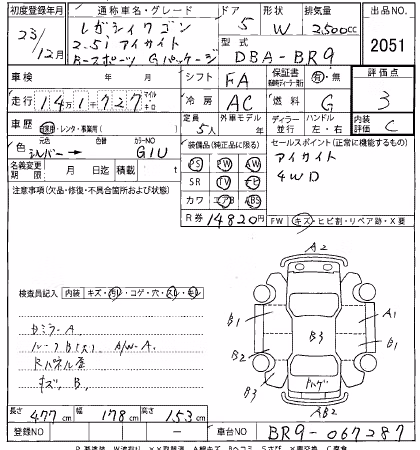 初度登録年月 通称車名・グレード ドア 形状 排気量 出品NO.
23/12月 レガシィワゴン 5 W 2,500cc 2051
2.5i アイサイト 型式
Bスポーツ Gパッケージ DBA-BR9
車検 年 月 シフト FA 保証書 有・無 評価点
走行 141727 マイル キロ 冷房 AC 燃料 G 3
車歴 自家用・レンタ・事業用( ) 定員 5人 外車モデル 年 ディーラー 並行 ハンドル 左・右 内装評価 C
色 元色 シルバー → 色替 カラーNO G1U 装備品(純正品に限る) セールスポイント(正常に機能するもの)
PS PW AW アイサイト
名義変更期限 月 日迄 積載 t SR TV ナビ 4WD
注意事項(欠品・修復・不具合箇所および状態) カワ エアB ABS
R券 14820円 FW キズ・ヒビ割・リペア跡・X要
A2
検査員記入 内装 キズ・汚レ・コゲ・穴・スレ・モレ
B1 A1
カミラーA B3
ルーフB(大) A/W-A. B2 B1
Rパネル歪
キズ、B. B3 ハゲ
AB2
長さ 477cm 幅 178cm 高さ 153cm
登録NO 車台NO BR9-067287